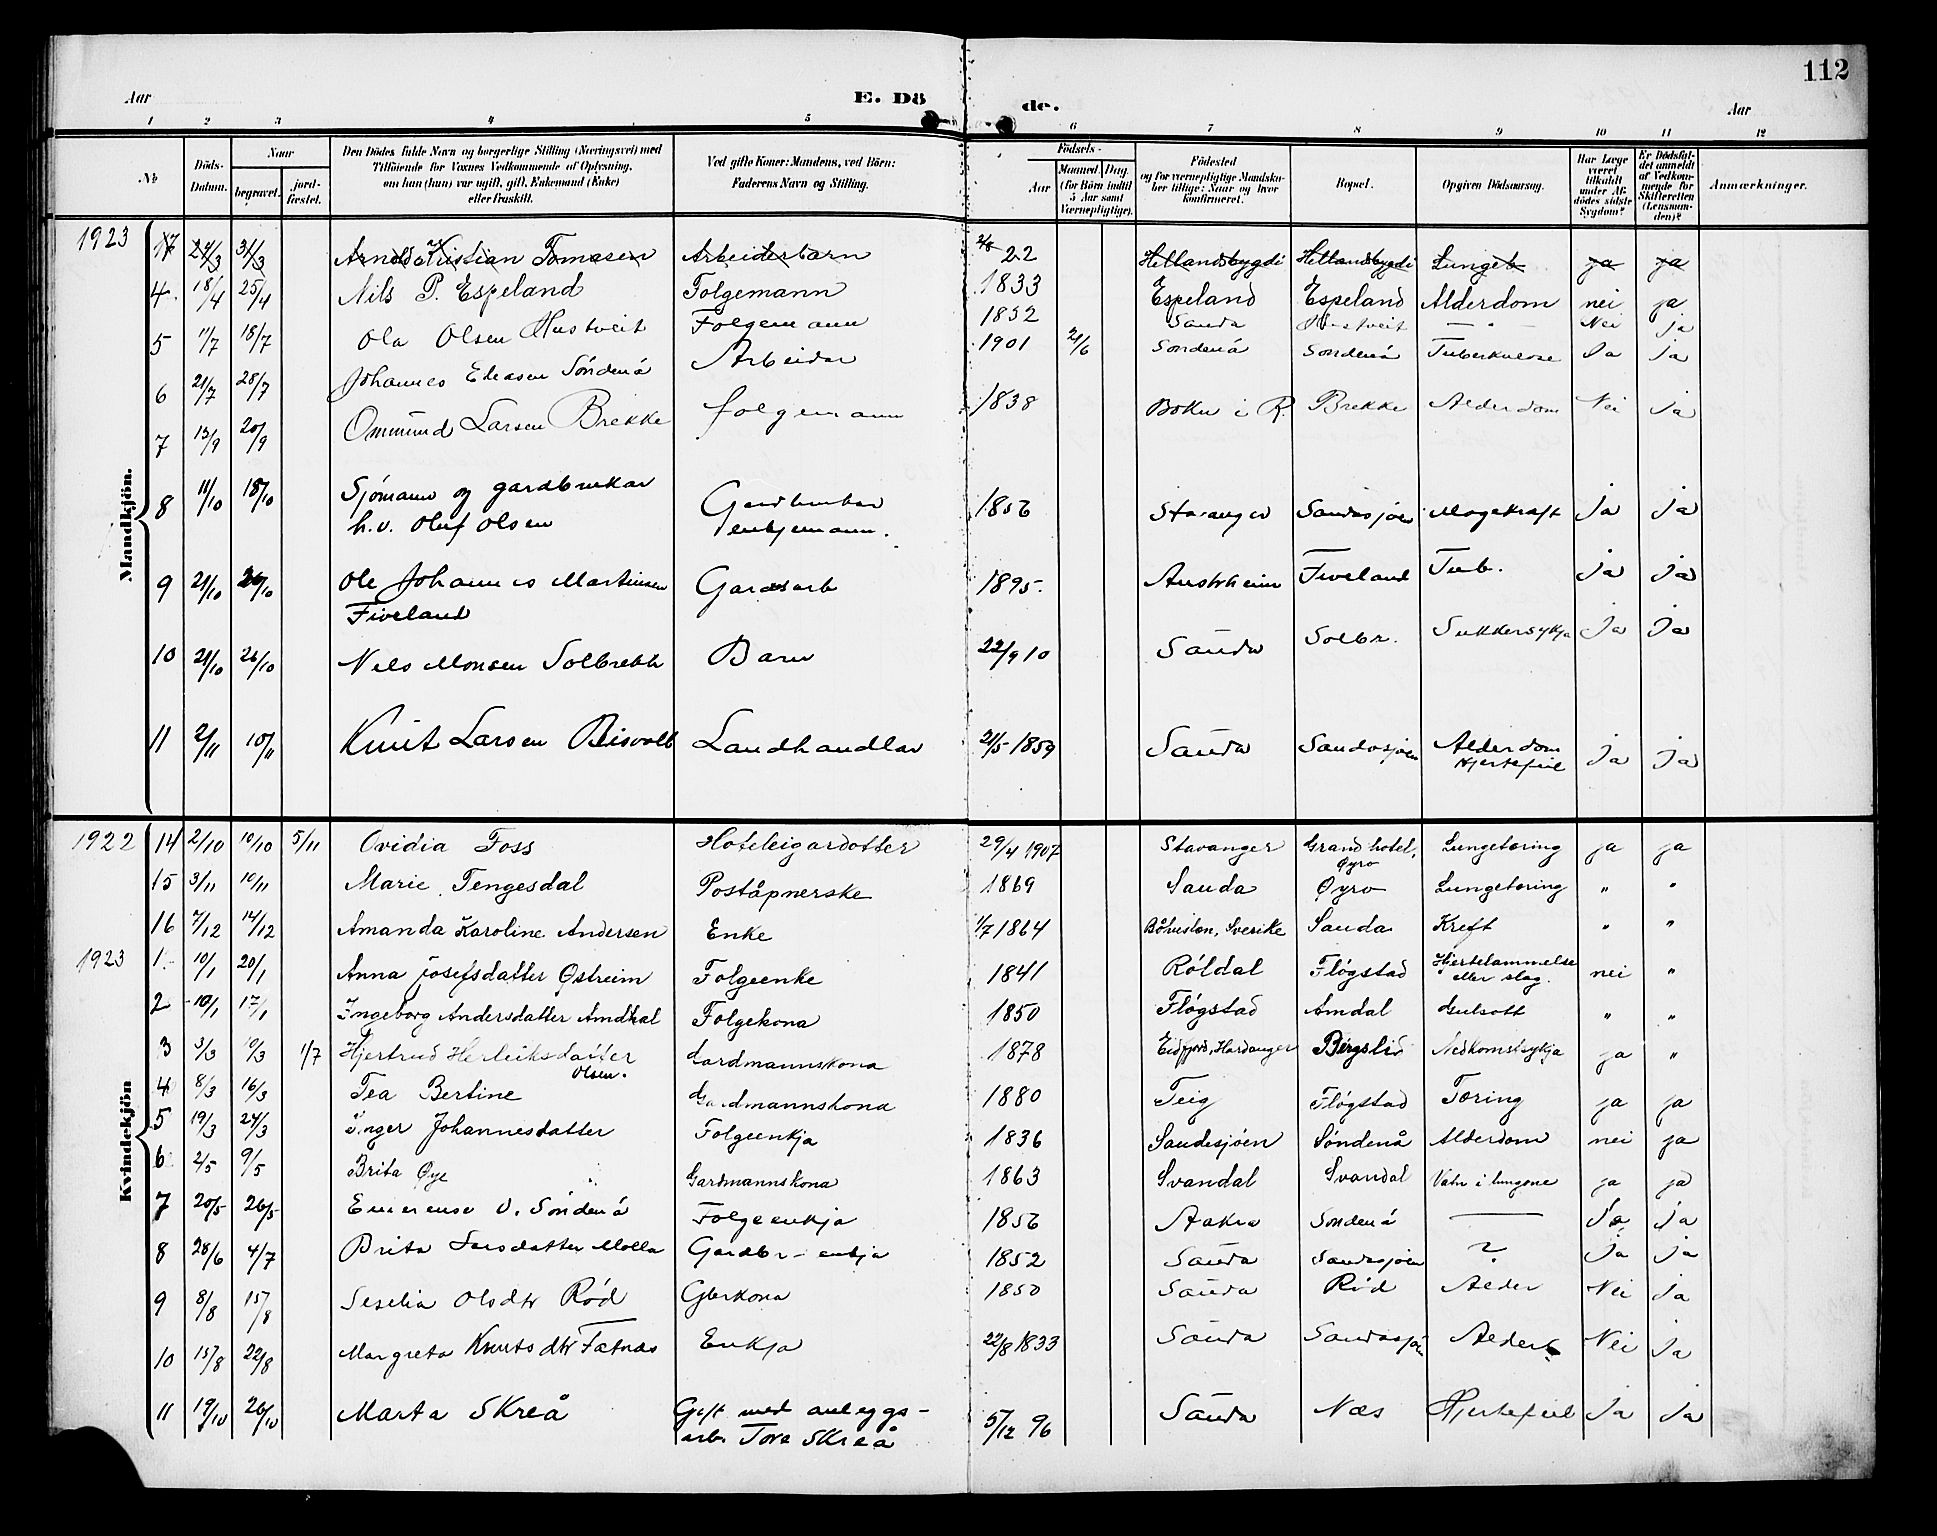 112
Aar E. Dö de. Aar
1 2 3 4 5 6 7 8 9 10 11 12
№ Döds-Datum. Naar begravet. jord-fæstet. Den Dödes fulde Navn og borgerlige Stilling (Næringsvei) med Tilföiende for Voxnes Vedkommende af Oplysning, om han (hun) var ugift, gift, Enkemand (Enke) eller fraskilt. Ved gifte Koner: Mandens, ved Börn: Faderens Navn og Stilling. Födsels- Aar Maaned. Dag. (for Börn indtil 5 Aar samt Værnepligtige). Födested og for værnepligtige Mandskaber tillige: Naar og hvor konfirmeret. Bopæl. Opgiven Dödsaarsag. Har Læge været tilkaldt under Afdödes sidste Sygdom? Er Dödsfaldet anmeldt af Vedkommende for Skifteretten (Lensmanden)? Anmærkninger.
Mandkjön.
1923 17 24/3 31/3 Arnold Kristian Tomasen Arbeiderbarn 2/8 22 Hellandsbygdi Hellandsbygdi Lungeb ja ja
4. 18/4 25/4 Nils P. Espeland Folgemann 1833 Espeland Espeland Alderdom nei ja
5 11/7 18/7 Ola Olsen Hustveit Folgemann 1832 Sauda Hustveit — " — Nei Ja
6 21/7 28/7 Johannes Eleasen Söndenå Arbeidar 1901 21/6 Sondenå Sondenå Tuberkulose Ja Ja
7 13/9 20/9 Ommund Larsen Brekke folgemann 1838 Bokn i R. Brekke Alderdom Nei Ja
8 11/10 18/10 Sjömann og gardbrukar Gardbrukar 1856 Stavanger Saudasjøen Magekraft Ja Ja
h.v. Oluf Olsen enkjemann.
9 21/10 26/10 Ole Johannes Martinsen Gardsarb 1895. Austrheim Fiveland Tub. Ja Ja
Fiveland
10 21/10 26/10 Nels Monsen Solbrekk Barn 22/9 10 Sauda Solbr. Sukkersykja Ja Ja
11 2/11 10/11 Knut Larsen Landhandlar 2/5-1859 Sauda Saudasjøen Alderdom Ja Ja
Hjertefeil
Kvindekjön
1922 14 2/10 10/10 5/11 Ovidia Foss Hoteleigardotter 29/4 1907 Stavanger Grand hotel, Øyro Lungetæring ja ja
15 3/11 10/11 Marie Tengesdal Poståpnerske 1869 Sauda Øyro Lungetæring " "
16 7/12 14/12 Amanda Karoline Andersen Enke 1/7 1864 Sverike Sauda Kreft " "
1923 1. 10/1 20/1 Anna Josefsdatter Østreim Folgeenke 1841 Röldal Flögstad Hjertelammelse eller slag. nei "
2 10/1 17/1 Ingeborg Andersdatter Amdhal Folgekona 1850 Flögstad Amdal Gulsott " "
3 3/3 10/3 1/7 Hjertrud Herleiksdatter Olsen. Gardmannskona 1878 Eidfjord, Hardanger Bergslid Nedkomstsykja ja "
4 8/3 16/3 Tea Bertine Gardmannskona 1880 Teig Flögstad Tæring ja ja
5 19/3 24/3 Inger Johannesdatter Folgeenkja 1836 Saudesjöen Söndenå Alderdom nei ja
6 2/5 9/5 Brita Øye Gardmannskona 1863 Svandal Svandal Vatn i lungene ja ja
7 20/5 26/5 Emerense O. Söndenå Folgeenkja 1856 Aakra Sondenå — Ja Ja
8 28/6 4/7 Brita Larsdatter Molla Gardbr-enkja 1852 Sauda Saudasjøen ? Ja Ja
9 8/8 15/8 Seselia Olsdtr Röd Gbrkona 1850 Sauda Röd Alder Nei Ja
10 15/8 22/8 Margreta Knutsdtr Fatnes Enkja 22/8 1833 Sauda Saudasjøen Alder Nei Ja
11 19/10 26/10 Marta Skreå Gift med anleggs- 5/12 96 Sauda Næs Hjertefeil Ja Ja
arb. Tore Skreå